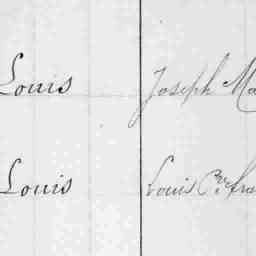 Louis Joseph Ma
Louis Louis